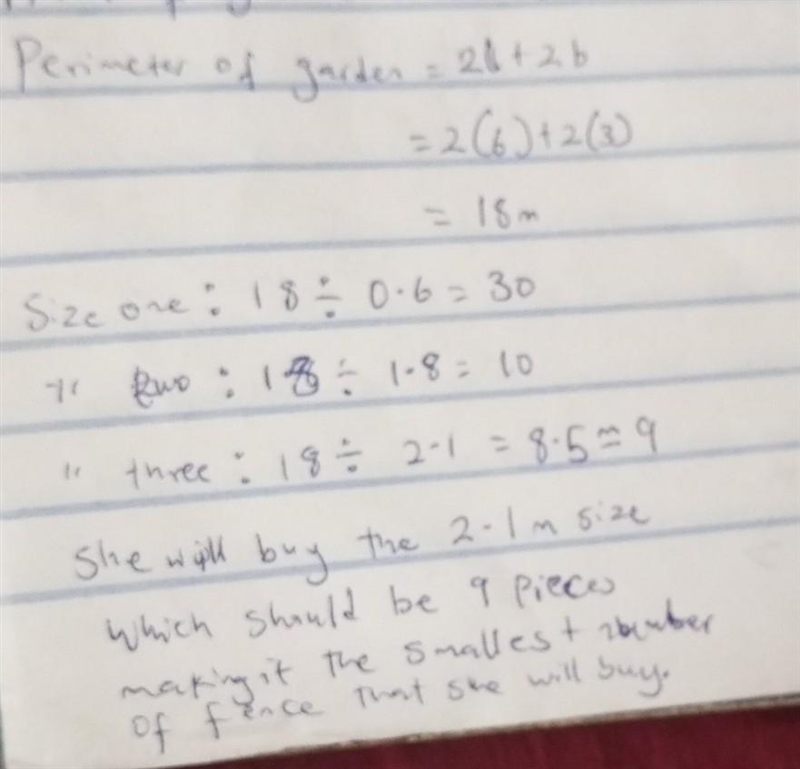 Perimeter of garden = 2l + 2b
= 2(6) + 2(3)
= 18m
Size one : 18 ÷ 0.6 = 30
" two : 18 ÷ 1.8 = 10
" three : 18 ÷ 2.1 = 8.5 ≃ 9
She will buy the 2.1m size
which should be 9 pieces
making it the smallest number
of fence that she will buy.